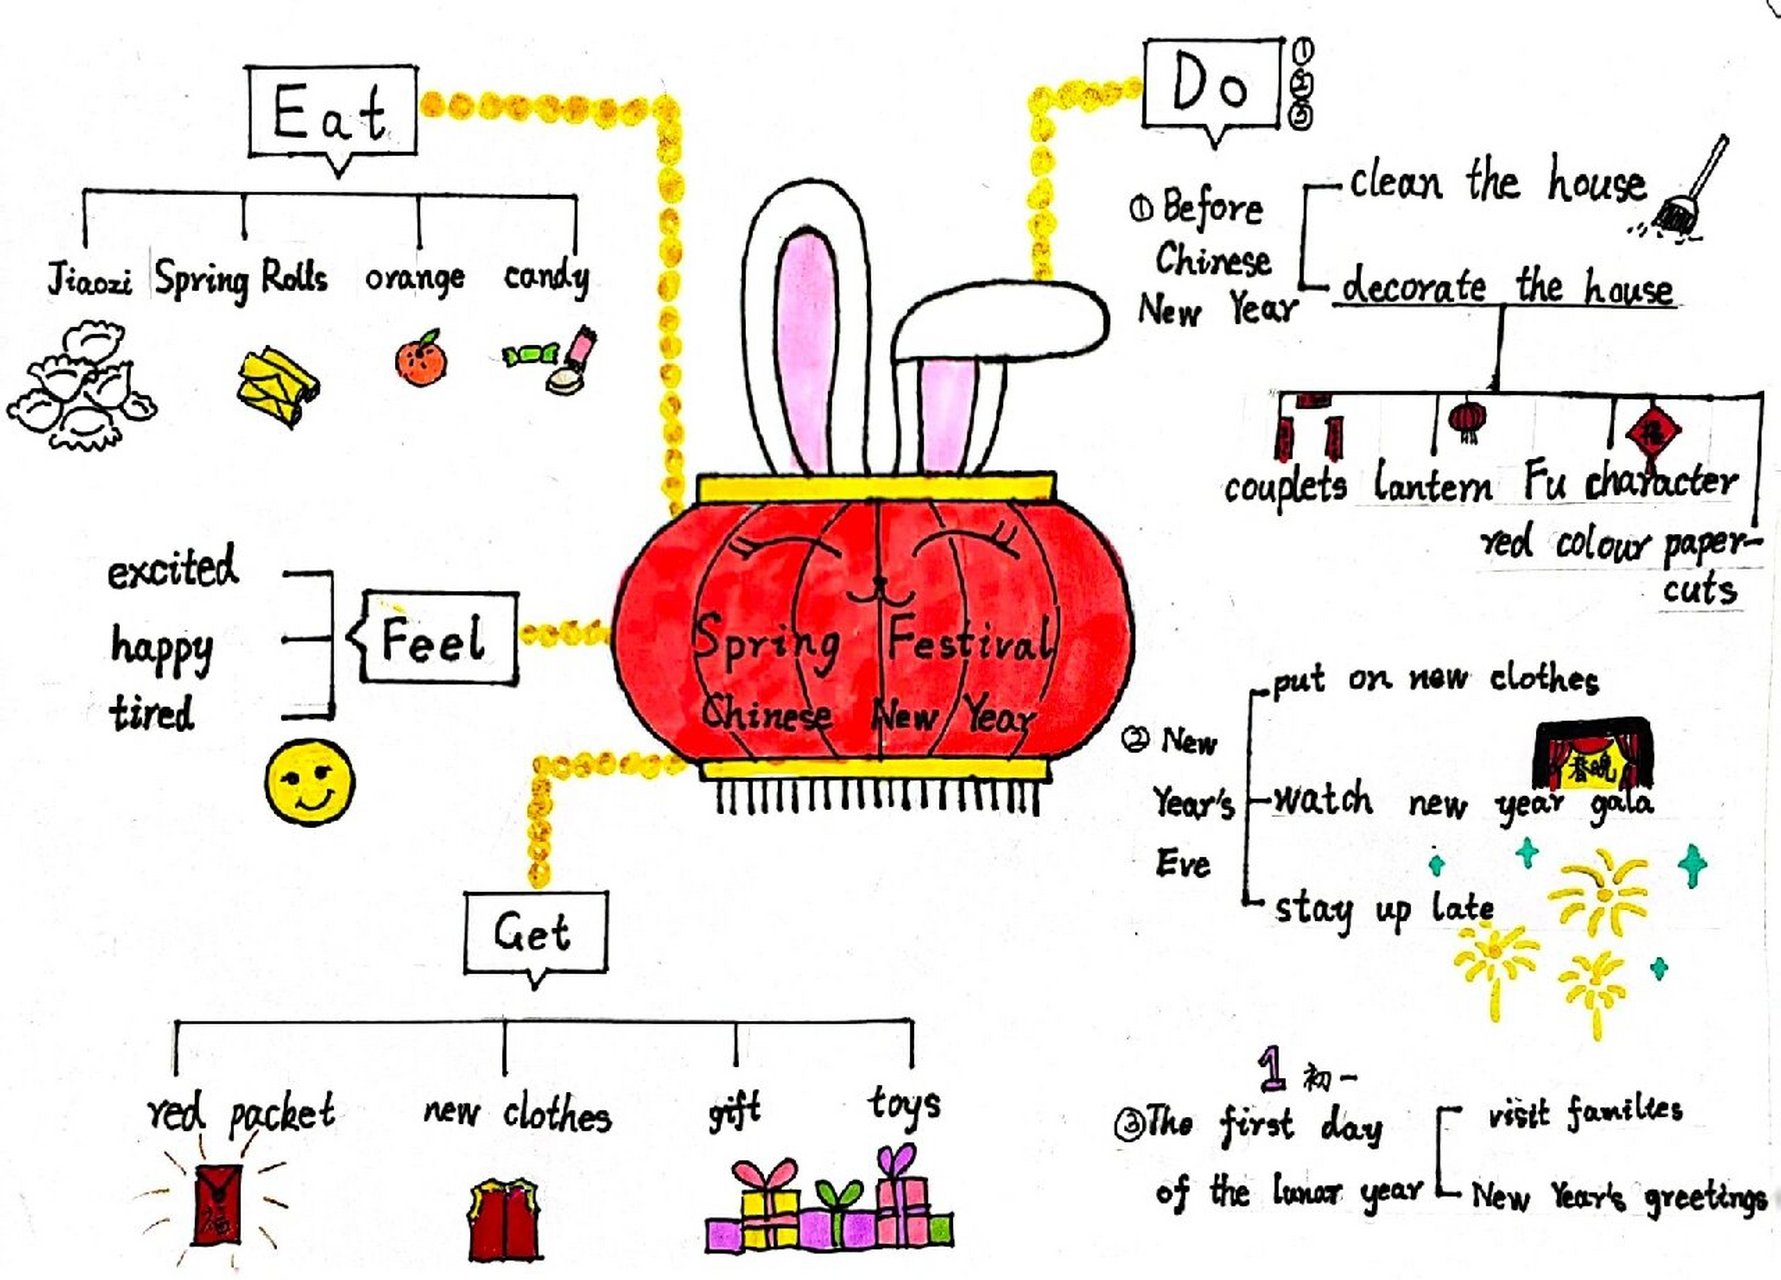 Eat
Jiaozi Spring Rolls orange candy
Feel
excited
happy
tired
Spring Festival
Chinese New Year
Get
red packet new clothes gift toys
福
Do ① ② ③
① Before
Chinese
New Year
clean the house
decorate the house
福
couplets lantern Fu character
red colour paper-
cuts
② New
Year's
Eve
put on new clothes
春晚
watch new year gala
stay up late
1 初一
③ The first day
of the lunar year
visit families
New Year's greetings